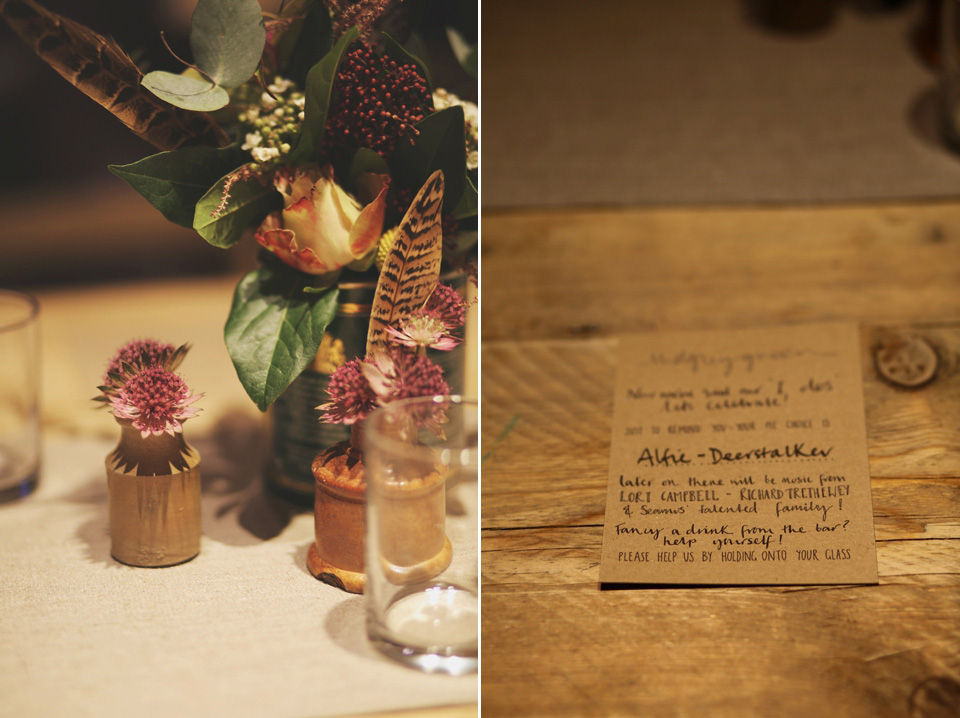 Now we've said our 'I do's
lets celebrate!
JUST TO REMIND YOU - YOUR PIE CHOICE IS
Alfie - Deerstalker
later on there will be music from
LORI CAMPBELL - RICHARD TRETHEWEY
& Seamus' talented family!
Fancy a drink from the bar?
help yourself!
PLEASE HELP US BY HOLDING ONTO YOUR GLASS